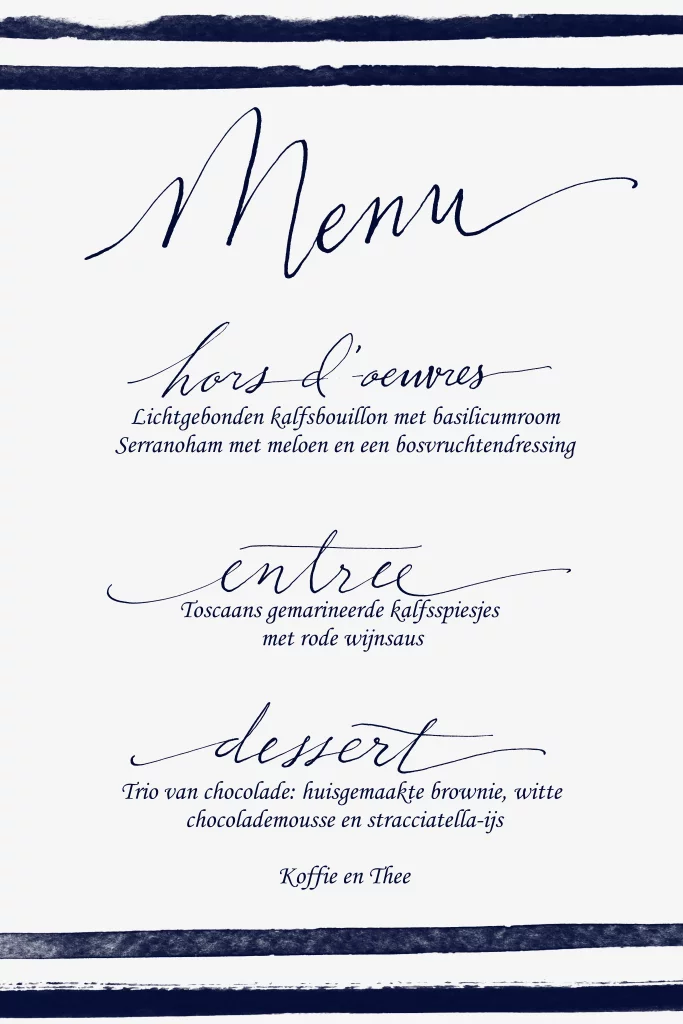 Menu
hors d'-oeuvres
Lichtgebonden kalfsbouillon met basilicumroom
Serranoham met meloen en een bosvruchtendressing
entree
Toscaans gemarineerde kalfsspiesjes
met rode wijnsaus
dessert
Trio van chocolade: huisgemaakte brownie, witte
chocolademousse en stracciatella-ijs
Koffie en Thee